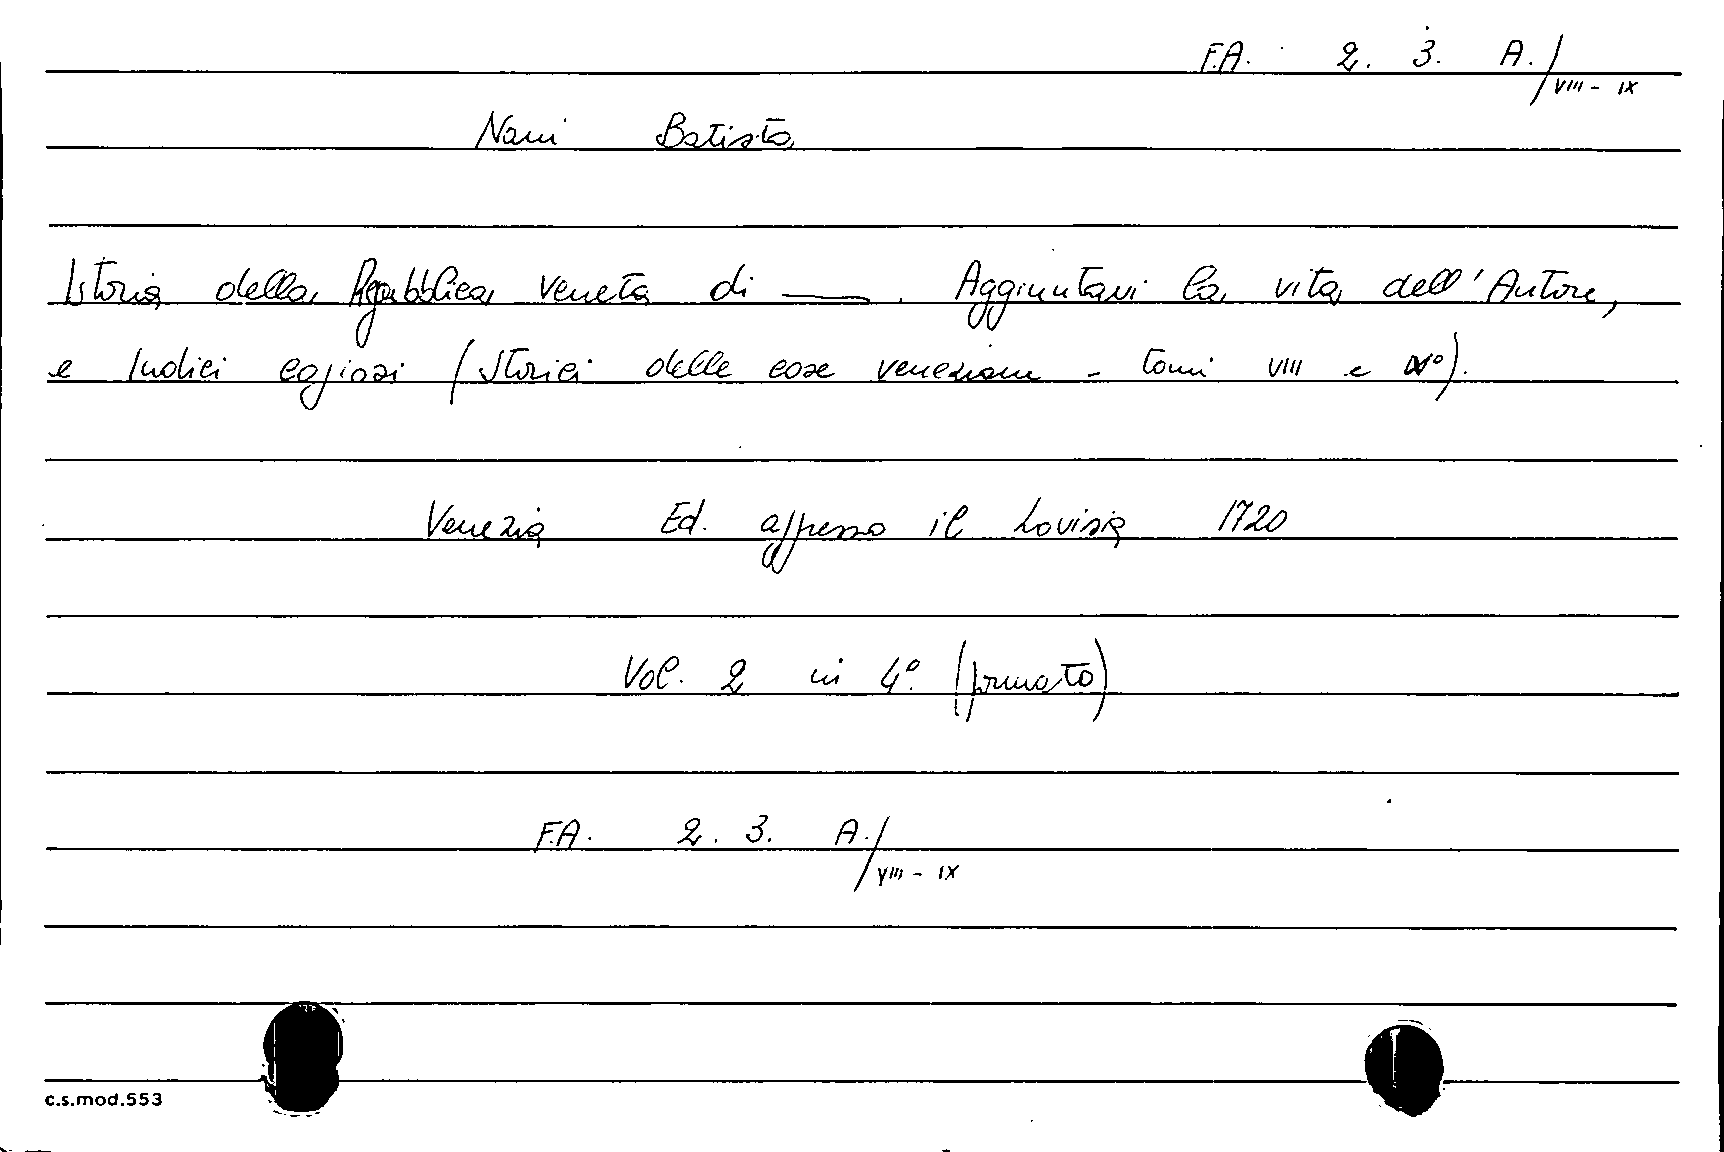 F.A. 2. 3. A./VIII - IX
Nani Batista
Istoria della Repubblica Veneta di ——. Aggiuntavi la vita dell'Autore,
e Indici copiosi (Storici delle cose veneziane - tomi VIII e
Venezia Ed. appresso il Lovisia 1720
Vol. 2 in 4°. (formato)
F.A. 2. 3. A./VIII - IX
c.s.mod.553